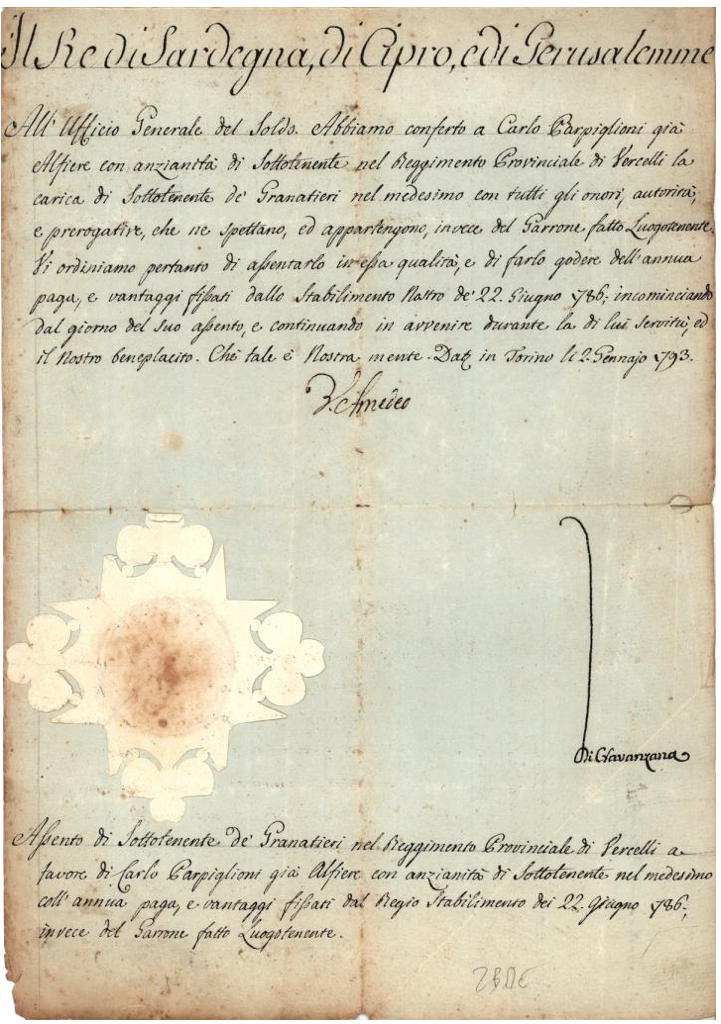 Il Re di Sardegna, di Cipro, e di Gerusalemme
All' Ufficio Generale del Soldo. Abbiamo conferto a Carlo Parpiglioni già
Alfiere con anzianità di Sottotenente nel Reggimento Provinciale di Vercelli la
carica di Sottotenente de' Granatieri nel medesimo con tutti gli onori, autorità,
e prerogative, che ne spettano, ed appartengono, invece del Garrone fatto Luogotenente.
Vi ordiniamo pertanto di assentarlo in essa qualità, e di farlo godere dell' annua
paga, e vantaggi fissati dallo Stabilimento Nostro de' 22. Giugno 1786; incominciando
dal giorno del suo assento, e continuando in avvenire durante la di lui servitù, ed
il Nostro beneplacito. Chè tale è Nostra mente. Dat in Torino li 2. Gennajo 1793.
V. Amedeo
Di Cravanzana
Assento di Sottotenente de' Granatieri nel Reggimento Provinciale di Vercelli a
favore di Carlo Parpiglioni già Alfiere con anzianità di Sottotenente nel medesimo
coll' annua paga, e vantaggi fissati dal Regio Stabilimento dei 22. Giugno 1786;
invece del Garrone fatto Luogotenente.